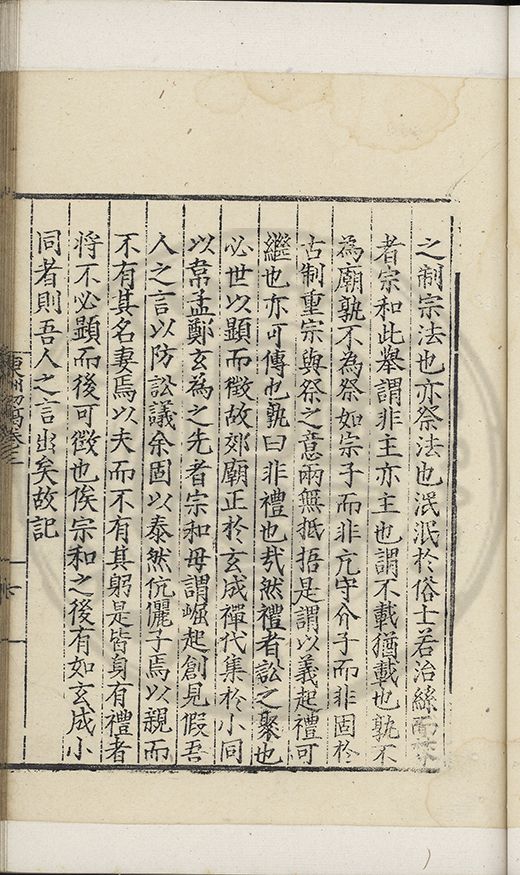 之制宗法也亦祭法也泯泯於俗士若治絲而棼
者宗和此舉謂非主亦主也謂不載猶載也孰不
為廟孰不為祭如宗子而非亢守介子而非固於
古制重宗與祭之意兩無抵捂是謂以義起禮可
繼也亦可傳也孰曰非禮也哉然禮者訟之聚也
必世以顯而徵故郊廟正於玄成禪代集於小同
以韋孟鄭玄為之先者宗和毋謂崛起創見假吾
人之言以防訟議余固以泰然伉儷子焉以親而
不有其名妻焉以夫而不有其躬是皆身有禮者
將不必顯而後可徵也俟宗和之後有如玄成小
同者則吾人之言出矣故記
東州初稿卷三